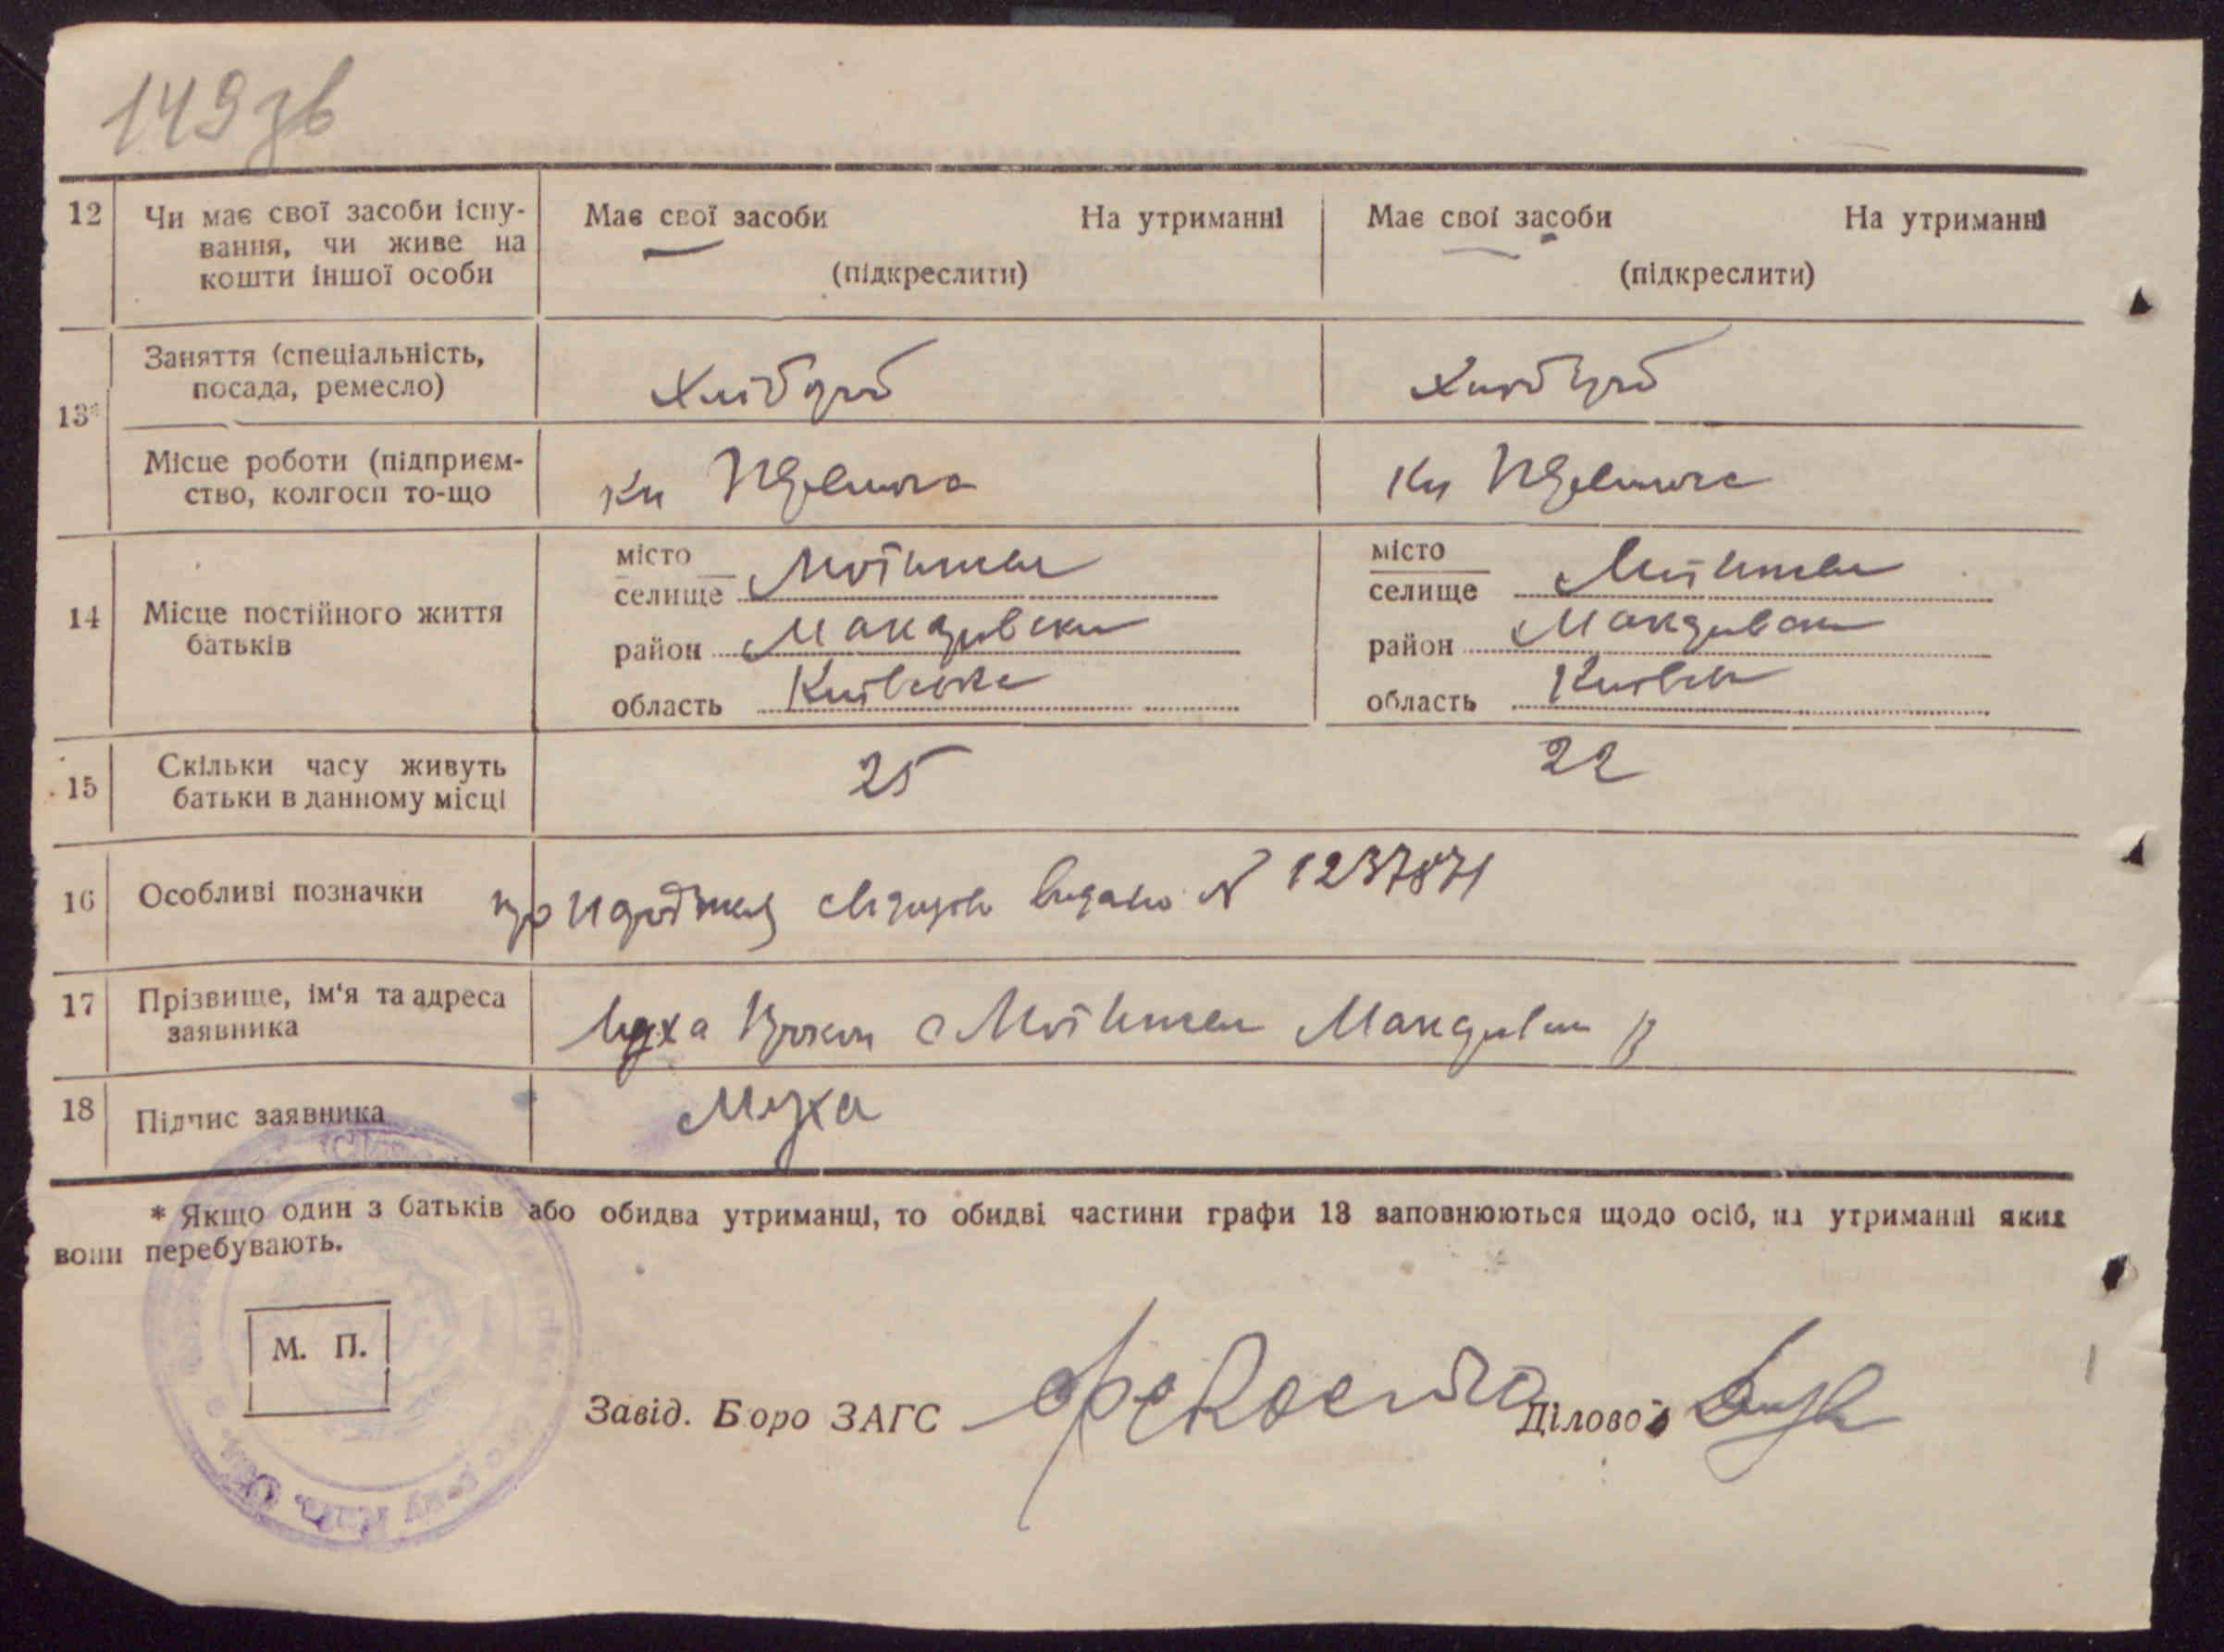 149 зв
12 Чи має свої засоби існу-
вання, чи живе на
кошти іншої особи
Має свої засоби На утриманні
(підкреслити)
Має свої засоби На утриманні
(підкреслити)
13* Заняття (спеціальність,
посада, ремесло)
Хлібороб
Хлібороб
Місце роботи (підприєм-
ство, колгосп то-що
14 Місце постійного життя
батьків
місто
селище Мотижин
район Макарівськ
область Київська
місто
селище Мотижин
район Макарівськ
область Київськ
15 Скільки часу живуть
батьки в данному місці
25
22
16 Особливі позначки
про народжен свідоцтво видано № 1237871
17 Прізвище, ім'я та адреса
заявника
Муха с Мотижин Макарівськ р
18 Підпис заявника
Муха
* Якщо один з батьків або обидва утриманці, то обидві частини графи 13 заповнюються щодо осіб, на утриманні яких
вони перебувають.
М. П.
Завід. Бюро ЗАГС
Діловод